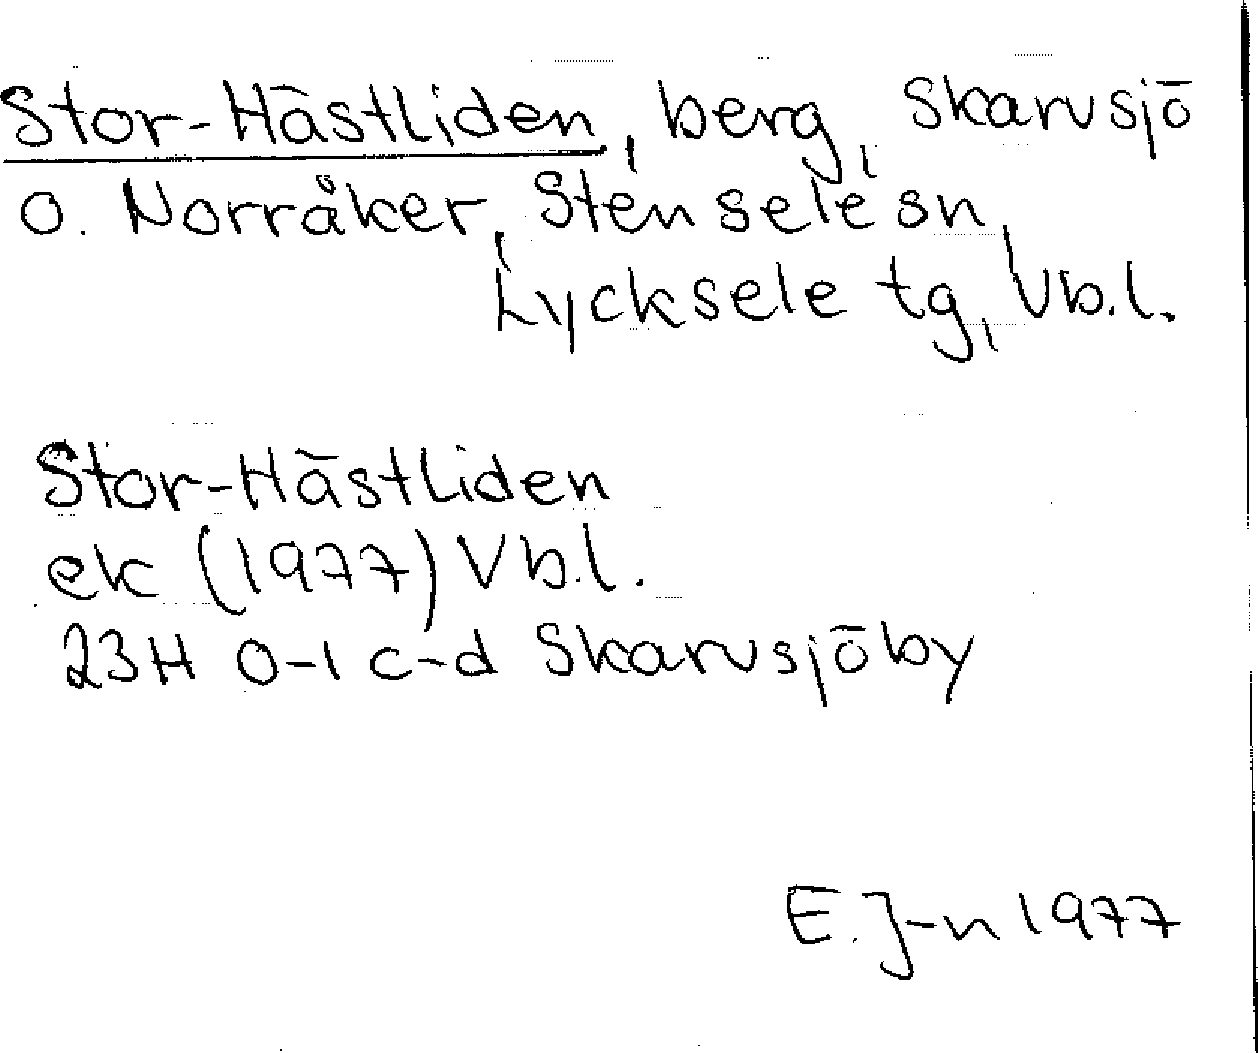 Stor-Hästliden, berg, Skarvsjö
o. Norråker, Stensele sn,
Lycksele tg, Vb.l.
Stor-Hästliden
ek (1977) Vb.l.
23H 0-1 c-d Skarvsjöby
E. J-n 1977